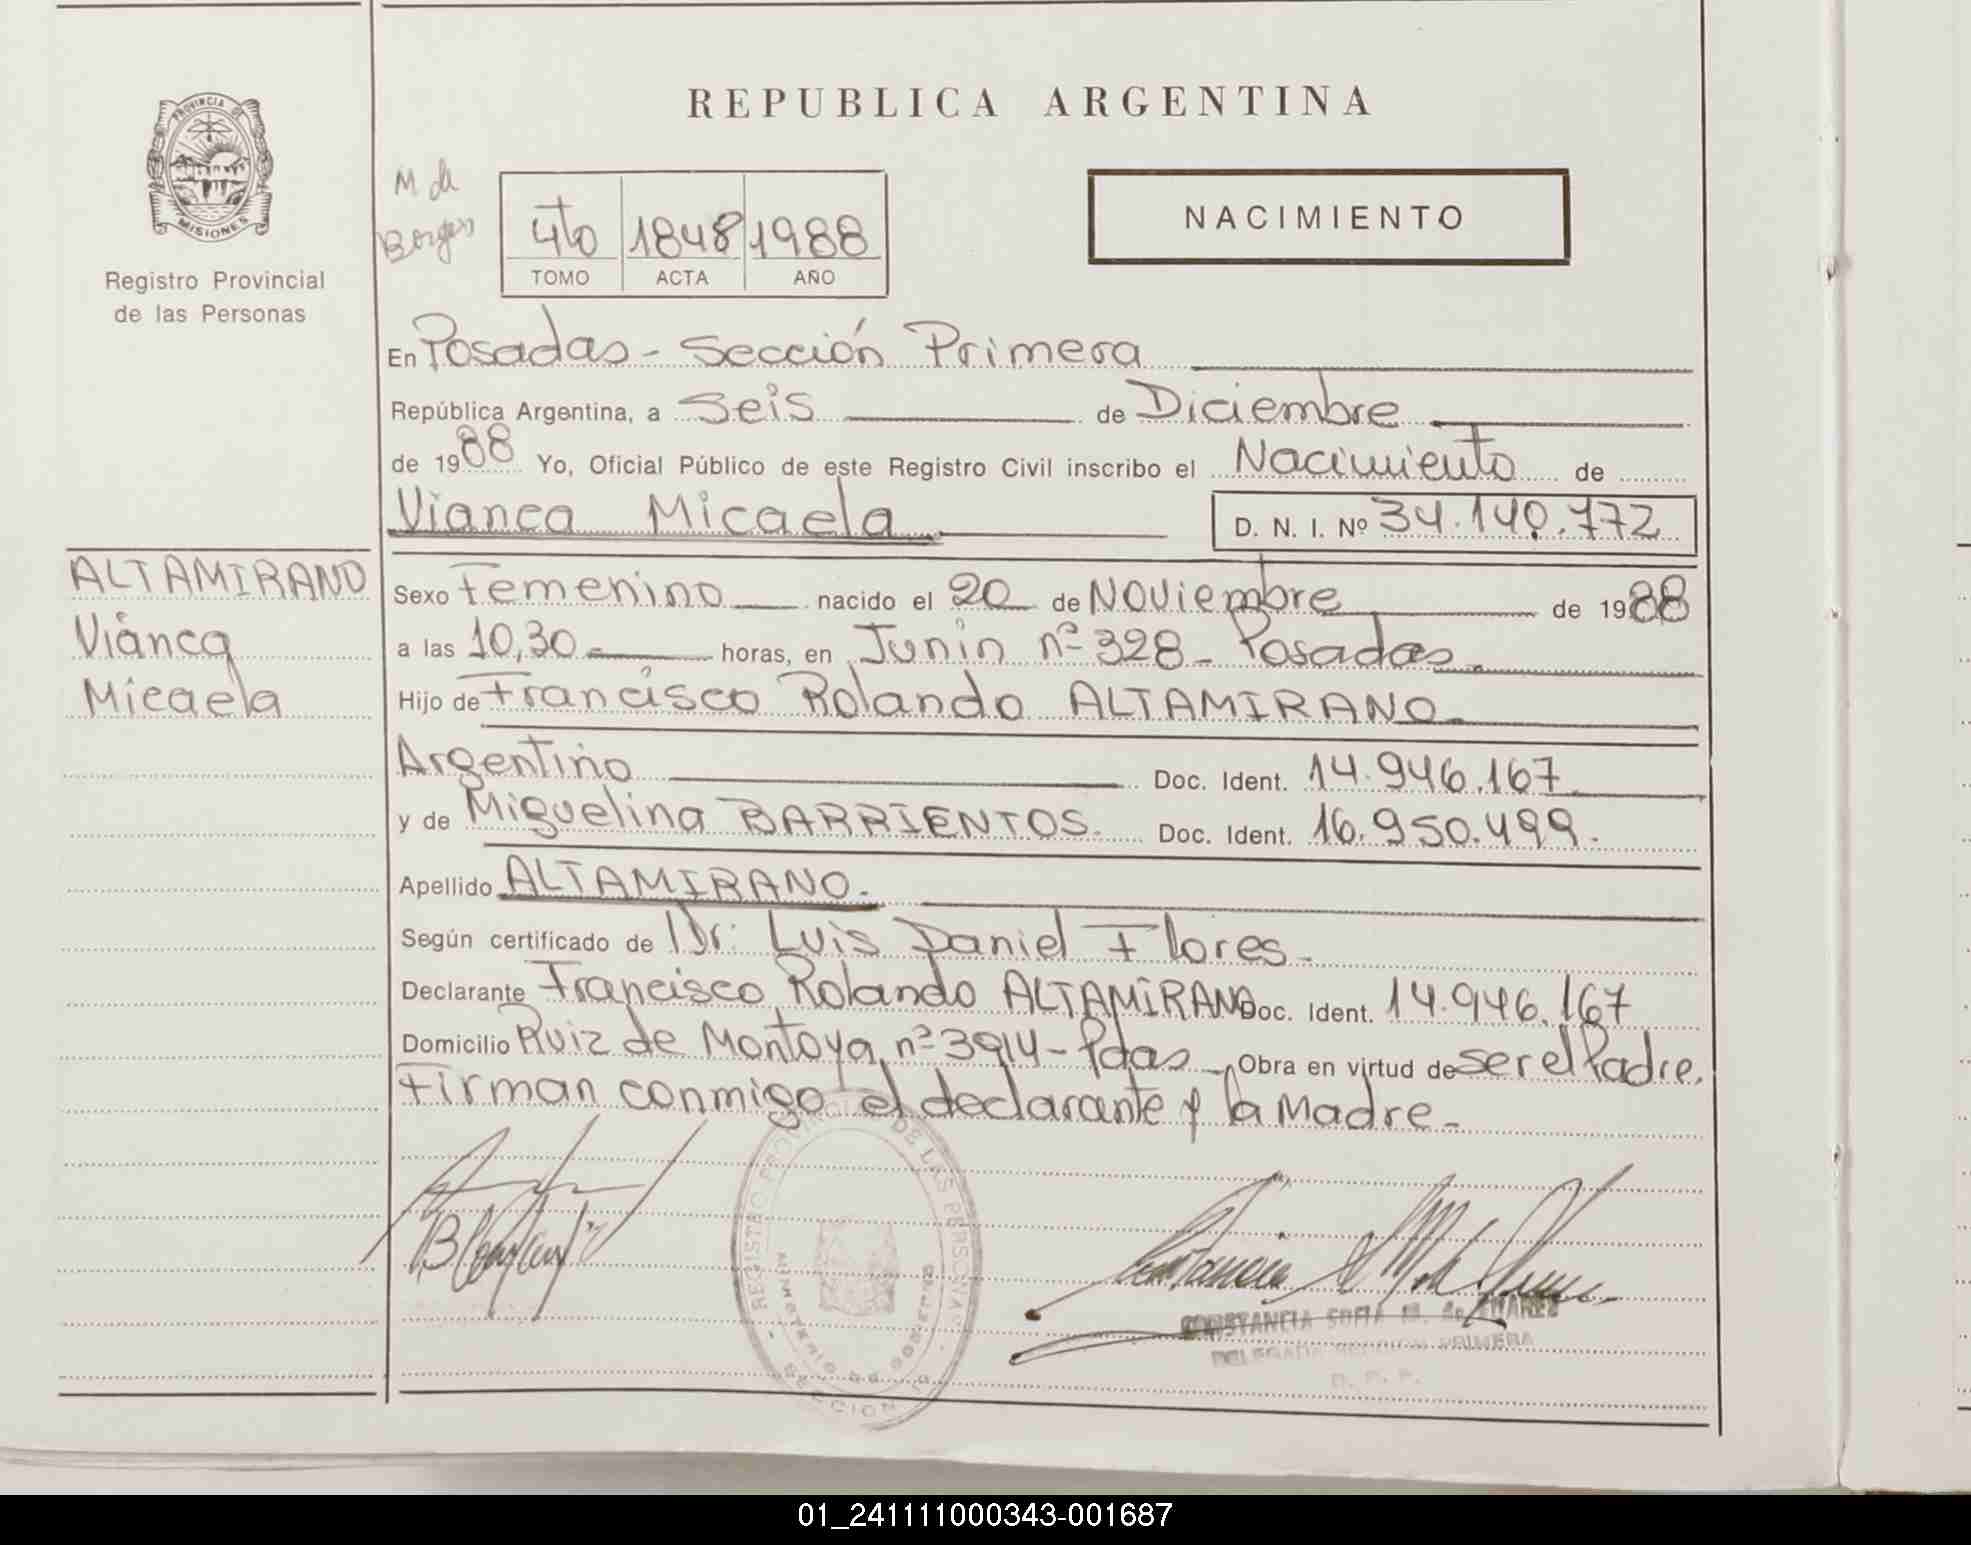 REPUBLICA ARGENTINA
PROVINCIA DE
MISIONES
Registro Provincial
de las Personas
M de
Borges
4to 1848 1988
TOMO ACTA AÑO
NACIMIENTO
En Posadas - Sección Primera
República Argentina, a Seis de Diciembre
de 1988 Yo, Oficial Público de este Registro Civil inscribo el Nacimiento de
Vianca Micaela D. N. I. Nº 34.140.772
ALTAMIRANO
Vianca
Micaela
Sexo Femenino nacido el 20 de Noviembre de 1988
a las 10,30 horas, en Junín nº 328 - Posadas.
Hijo de Francisco Rolando ALTAMIRANO
Argentino Doc. Ident. 14.946.167
y de Miguelina BARRIENTOS. Doc. Ident. 16.950.499.
Apellido ALTAMIRANO.
Según certificado de Dr. Luis Daniel Flores.
Declarante Francisco Rolando ALTAMIRANO Doc. Ident. 14.946.167
Domicilio Ruiz de Montoya nº 3914 - Pdas Obra en virtud de ser el Padre.
Firman conmigo el declarante y la Madre.
REGISTRO PROVINCIAL DE LAS PERSONAS
MINISTERIO DE GOBIERNO
SECCION
CONSTANCIA SOFIA M. de
DELEGADA SECCION PRIMERA
R. P. P.
01_241111000343-001687